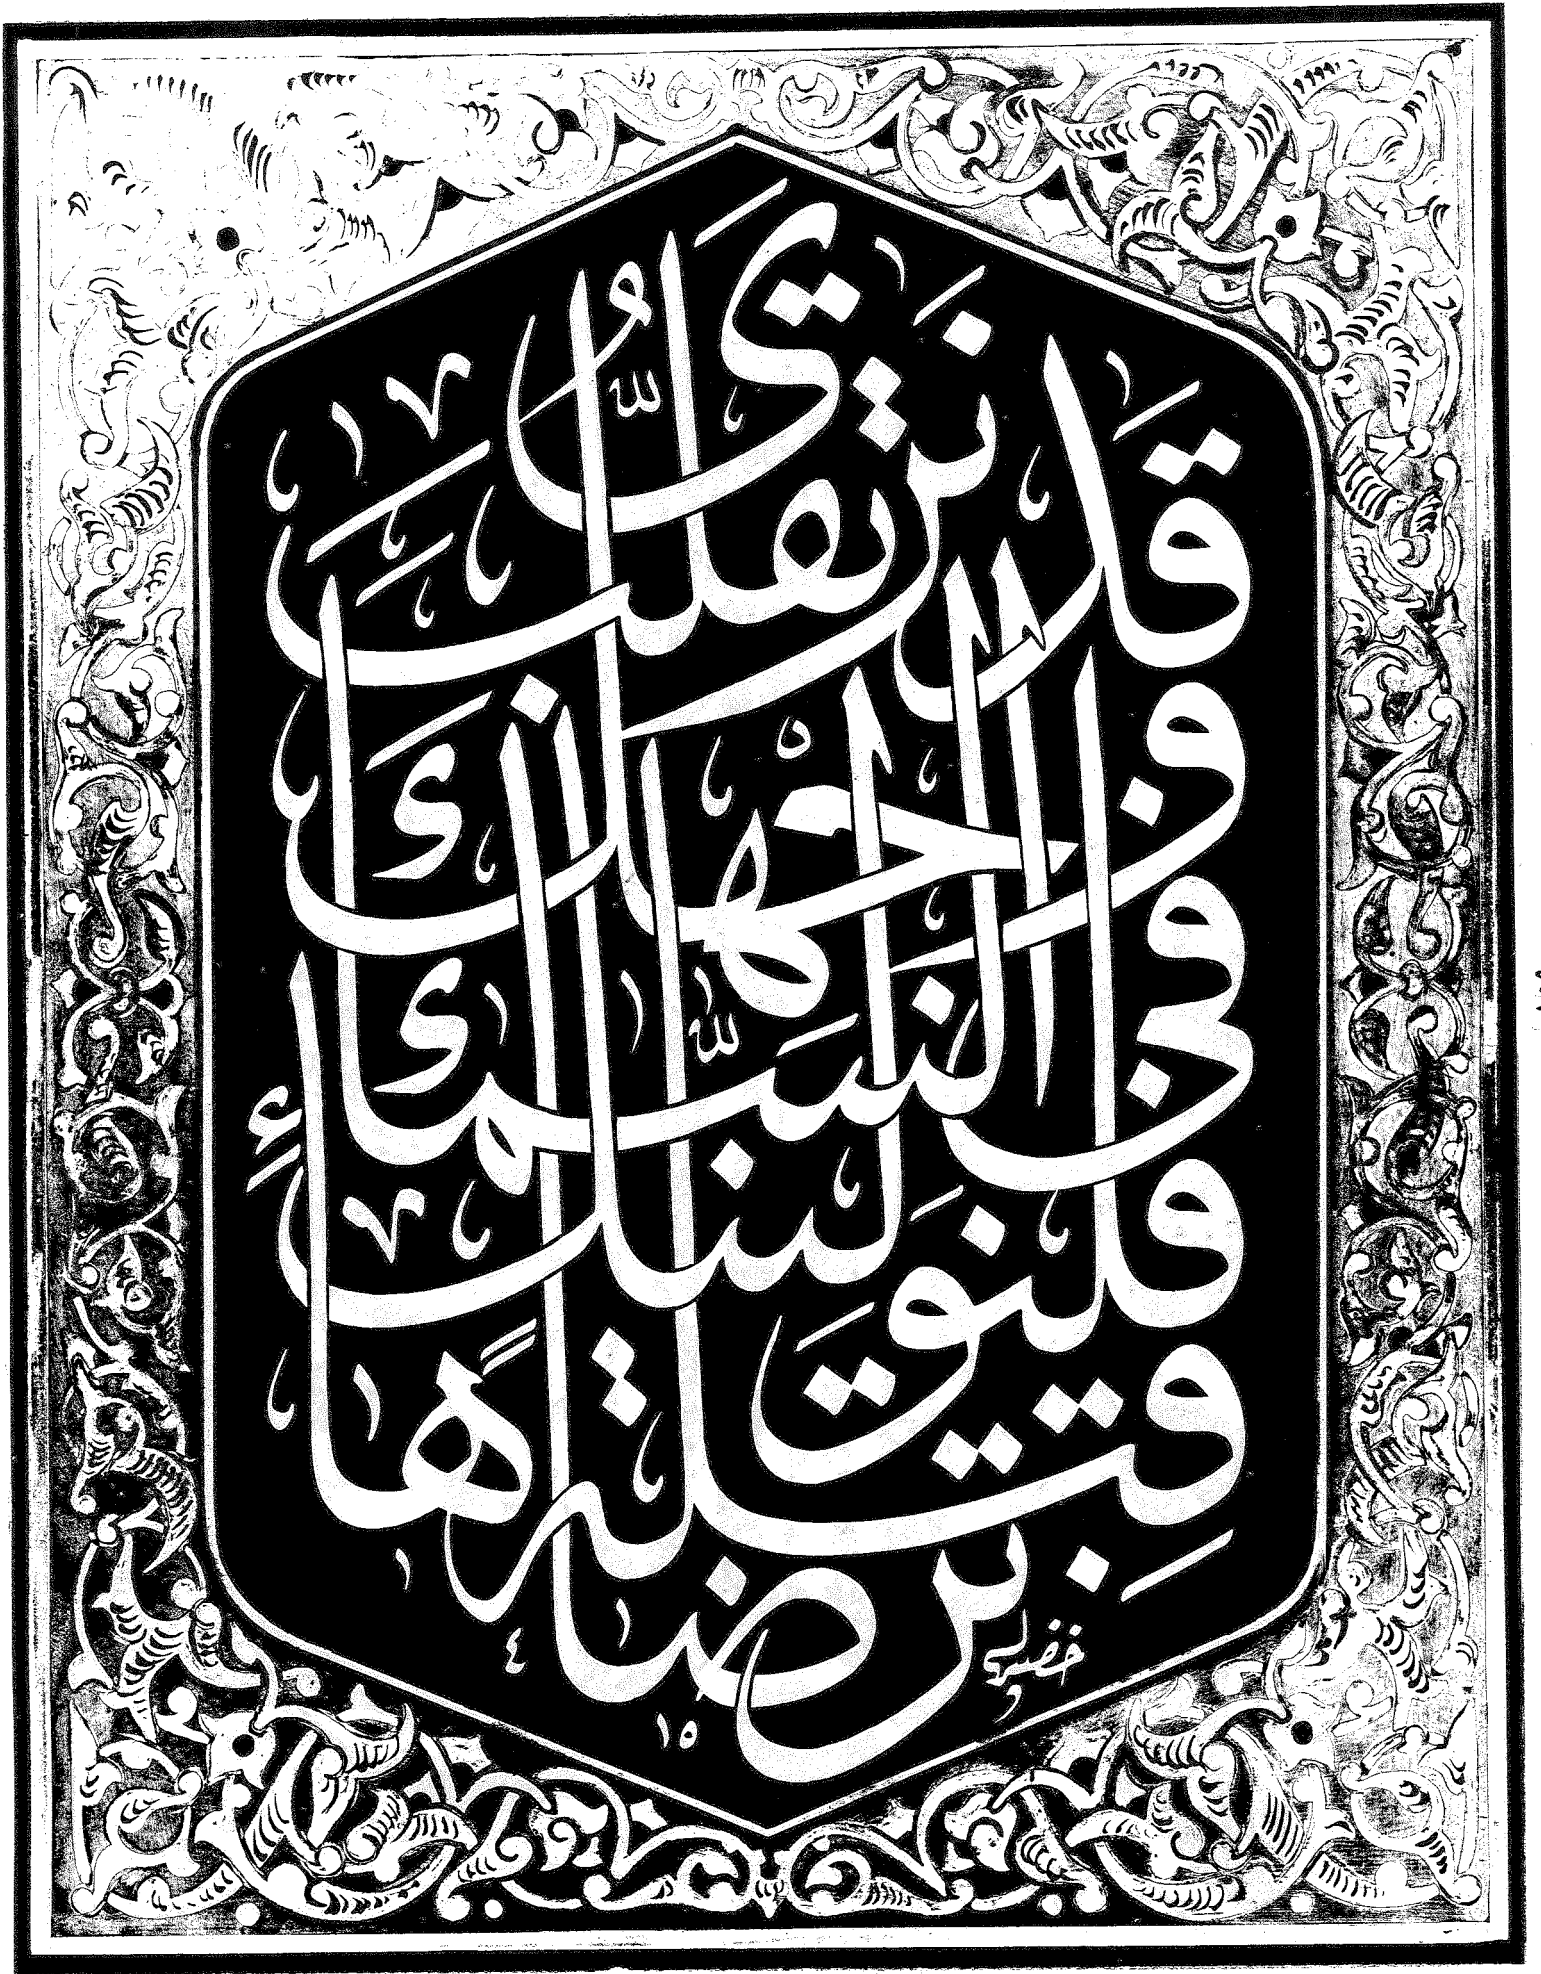 قَدْ نَرَىٰ تَقَلُّبَ
وَجْهِكَ
فِي السَّمَاءِ
فَلَنُوَلِّيَنَّكَ
قِبْلَةً تَرْضَاهَا